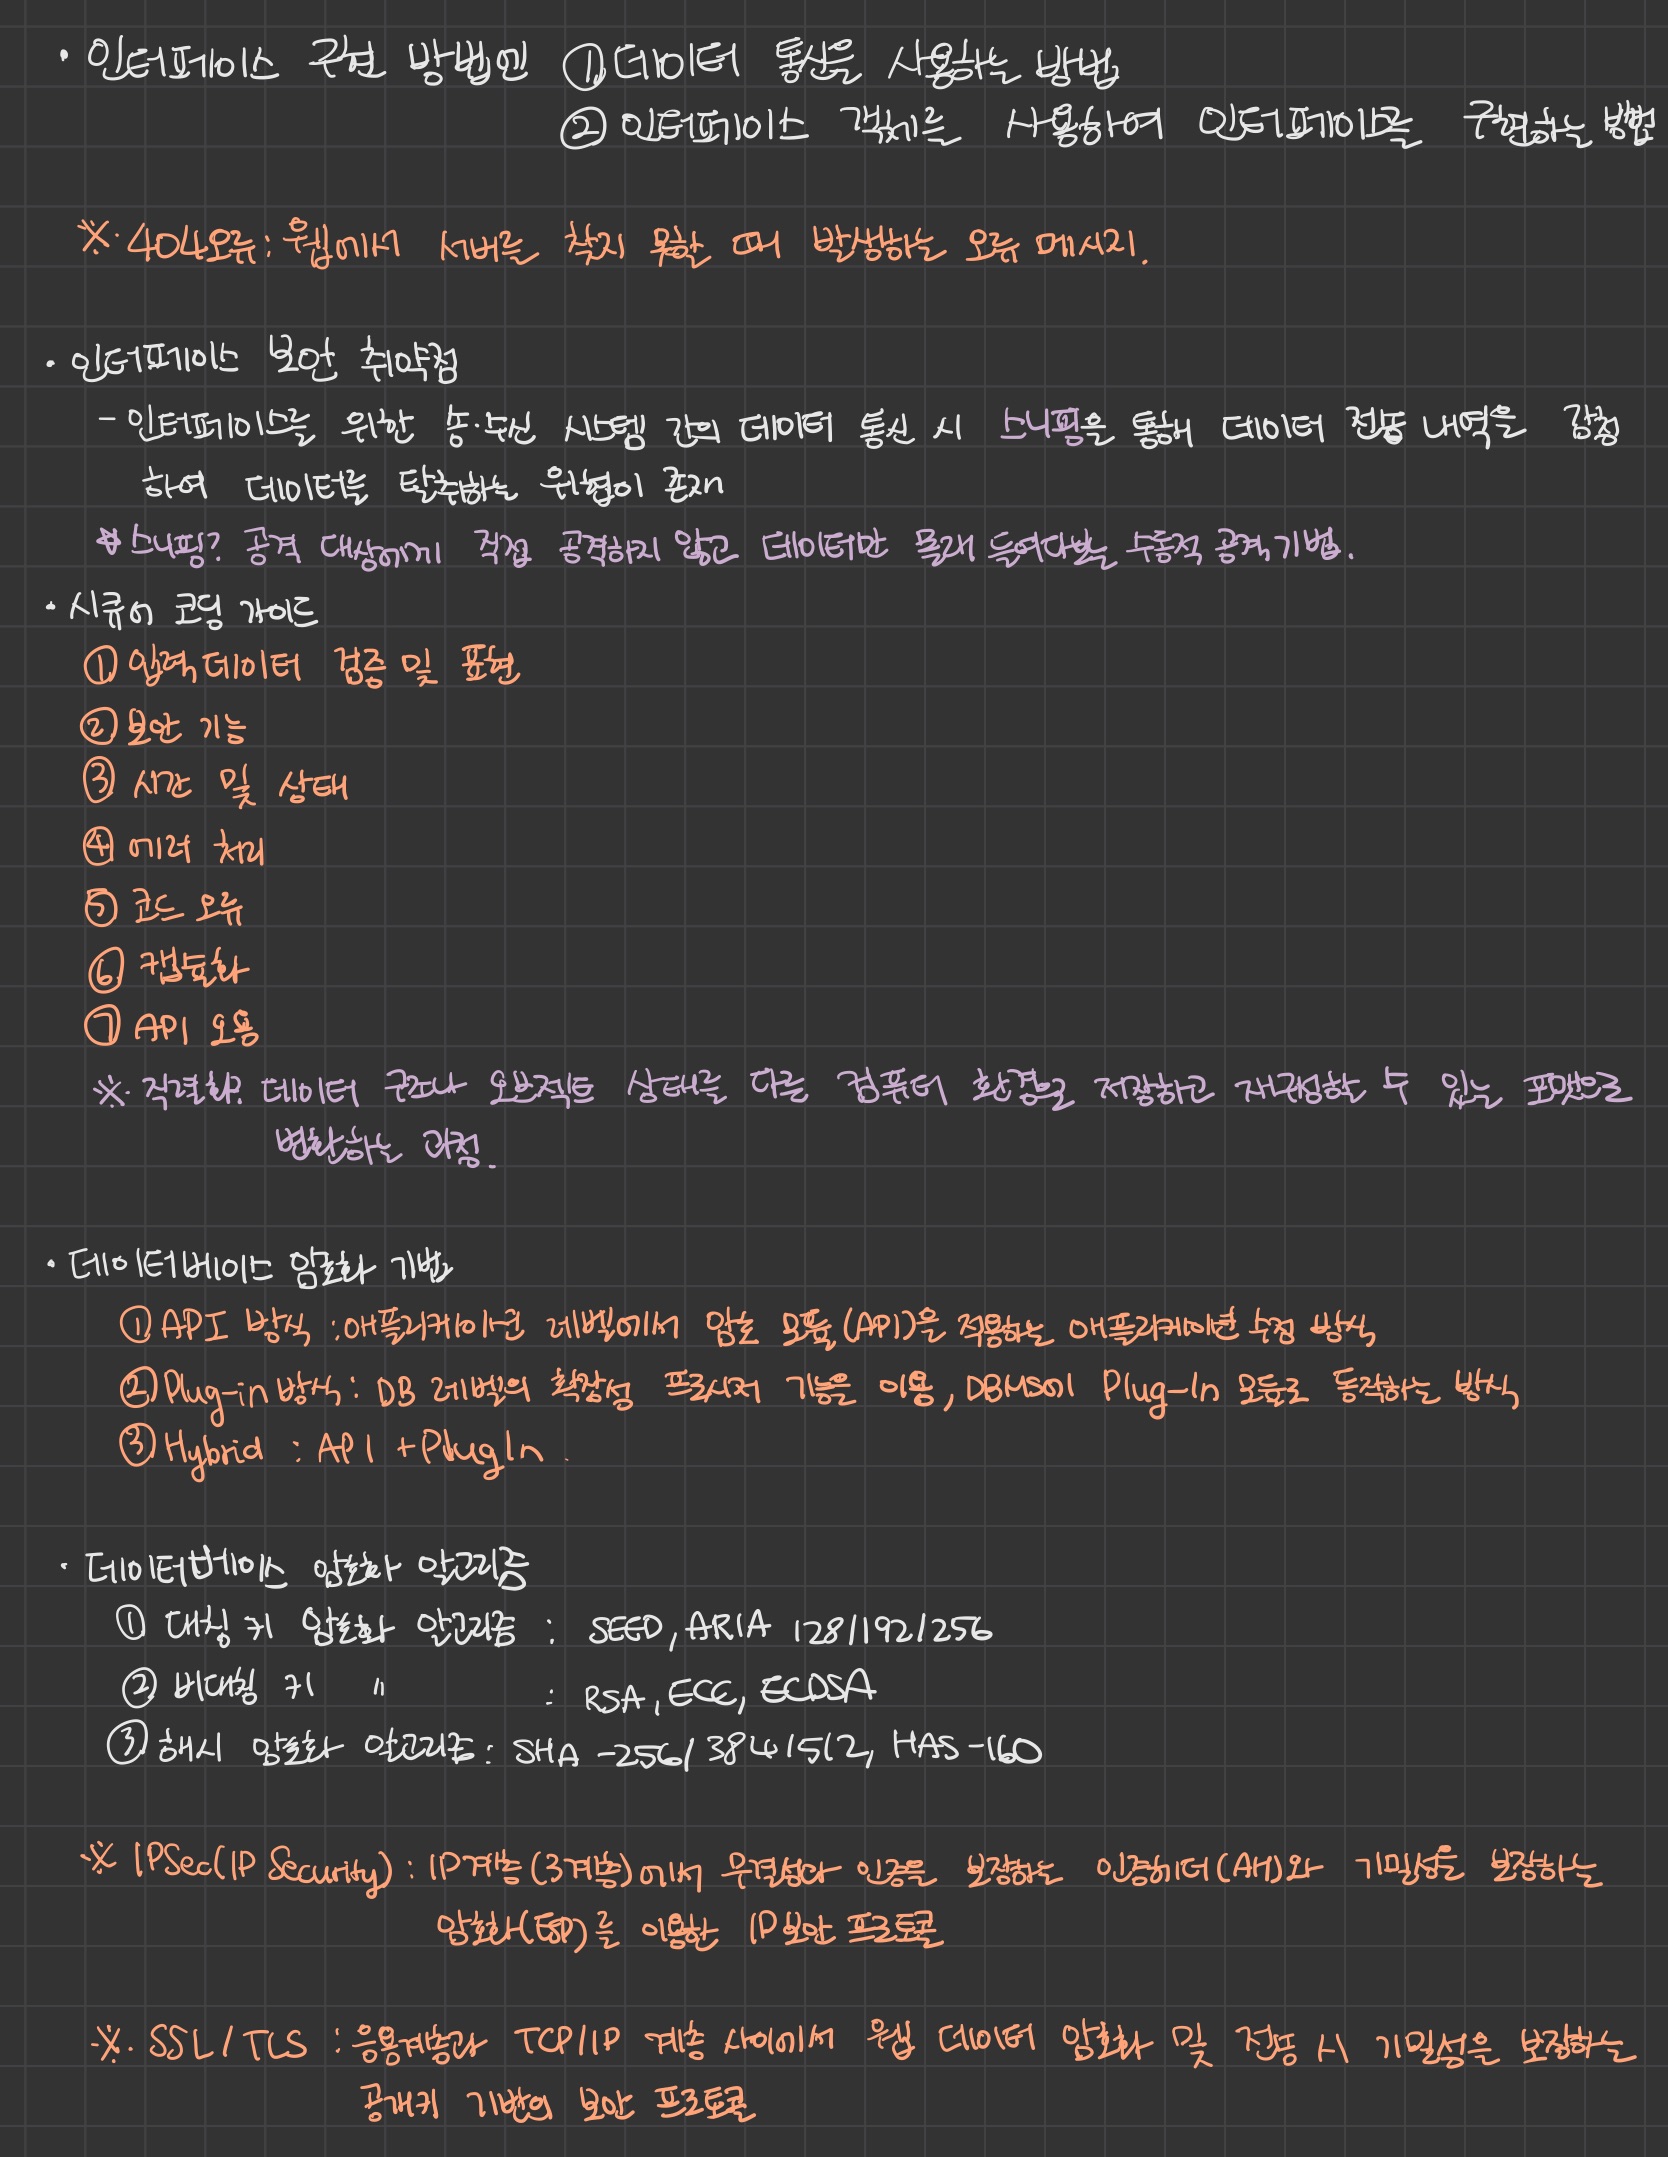 · 인터페이스 구현 방법엔 ① 데이터 통신을 사용하는 방법
② 인터페이스 객체를 사용하여 인터페이스를 구현하는 방법
※. 404오류 : 웹에서 서버를 찾지 못할 때 발생하는 오류 메시지.
· 인터페이스 보안 취약점
- 인터페이스를 위한 송·수신 시스템 간의 데이터 통신 시 스니핑을 통해 데이터 전송 내역을 감청
하여 데이터를 탈취하는 위협이 존재
※ 스니핑? 공격 대상에게 직접 공격하지 않고 데이터만 몰래 들여다보는 수동적 공격 기법.
· 시큐어 코딩 가이드
① 입력 데이터 검증 및 표현
② 보안 기능
③ 시간 및 상태
④ 에러 처리
⑤ 코드 오류
⑥ 캡슐화
⑦ API 오용
※. 직렬화? 데이터 구조나 오브젝트 상태를 다른 컴퓨터 환경으로 저장하고 재구성할 수 있는 포맷으로
변환하는 과정.
· 데이터베이스 암호화 기법
① API 방식 : 애플리케이션 레벨에서 암호 모듈(API)을 적용하는 애플리케이션 수정 방식
② Plug-in 방식 : DB 레벨의 확장성 프로시저 기능을 이용, DBMS에 Plug-In 모듈로 동작하는 방식
③ Hybrid : API + PlugIn.
· 데이터베이스 암호화 알고리즘
① 대칭 키 암호화 알고리즘 : SEED, ARIA 128/192/256
② 비대칭 키 〃 : RSA, ECC, ECDSA
③ 해시 암호화 알고리즘 : SHA -256/384/512, HAS-160
※ IPSec(IP Security) : IP계층(3계층)에서 무결성과 인증을 보장하는 인증헤더(AH)와 기밀성을 보장하는
암호화(ESP)를 이용한 IP 보안 프로토콜
※. SSL/TLS : 응용계층과 TCP/IP 계층 사이에서 웹 데이터 암호화 및 전송 시 기밀성을 보장하는
공개키 기반의 보안 프로토콜